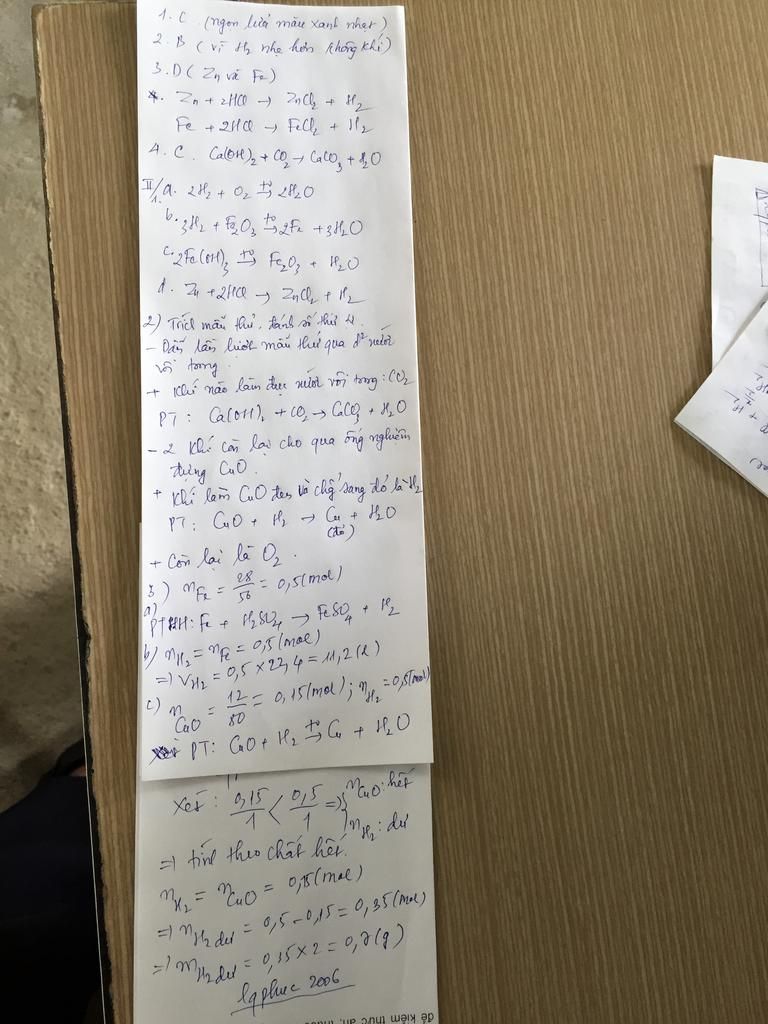 1. C. (ngọn lửa màu xanh nhạt)
2. B (vì H2 nhẹ hơn không khí)
3. D (Zn và Fe)
Zn + 2HCl → ZnCl2 + H2
Fe + 2HCl → FeCl2 + H2
4. C. Ca(OH)2 + CO2 → CaCO3 + H2O
II/ 1. a. 2H2 + O2 →(t°) 2H2O
b. 3H2 + Fe2O3 →(t°) 2Fe + 3H2O
c. 2Fe(OH)3 →(t°) Fe2O3 + H2O
d. Zn + 2HCl → ZnCl2 + H2
2) Trích mẫu thử, đánh số thứ tự.
- Dẫn lần lượt mẫu thử qua d² nước
vôi trong.
+ Khí nào làm đục nước vôi trong: CO2
PT: Ca(OH)2 + CO2 → CaCO3 + H2O
- 2 khí còn lại cho qua ống nghiệm
đựng CuO.
+ Khí làm CuO đen và chuyển sang đỏ là H2
PT: CuO + H2 → Cu + H2O
(đỏ)
+ Còn lại là O2.
3) nFe = 28/56 = 0,5 (mol)
a)
PTHH: Fe + H2SO4 → FeSO4 + H2
b) nH2 = nFe = 0,5 (mol)
=> VH2 = 0,5 × 22,4 = 11,2 (l)
c) nCuO = 12/80 = 0,15 (mol); nH2 = 0,5 (mol)
PT: CuO + H2 →(t°) Cu + H2O
Xét: 0,15/1 < 0,5/1 => { nCuO: hết
nH2: dư
=> tính theo chất hết.
nH2 = nCuO = 0,15 (mol)
=> nH2 dư = 0,5 - 0,15 = 0,35 (mol)
=> mH2 dư = 0,35 × 2 = 0,7 (g)
lqphuc 2006
để kiểm thức ăn,